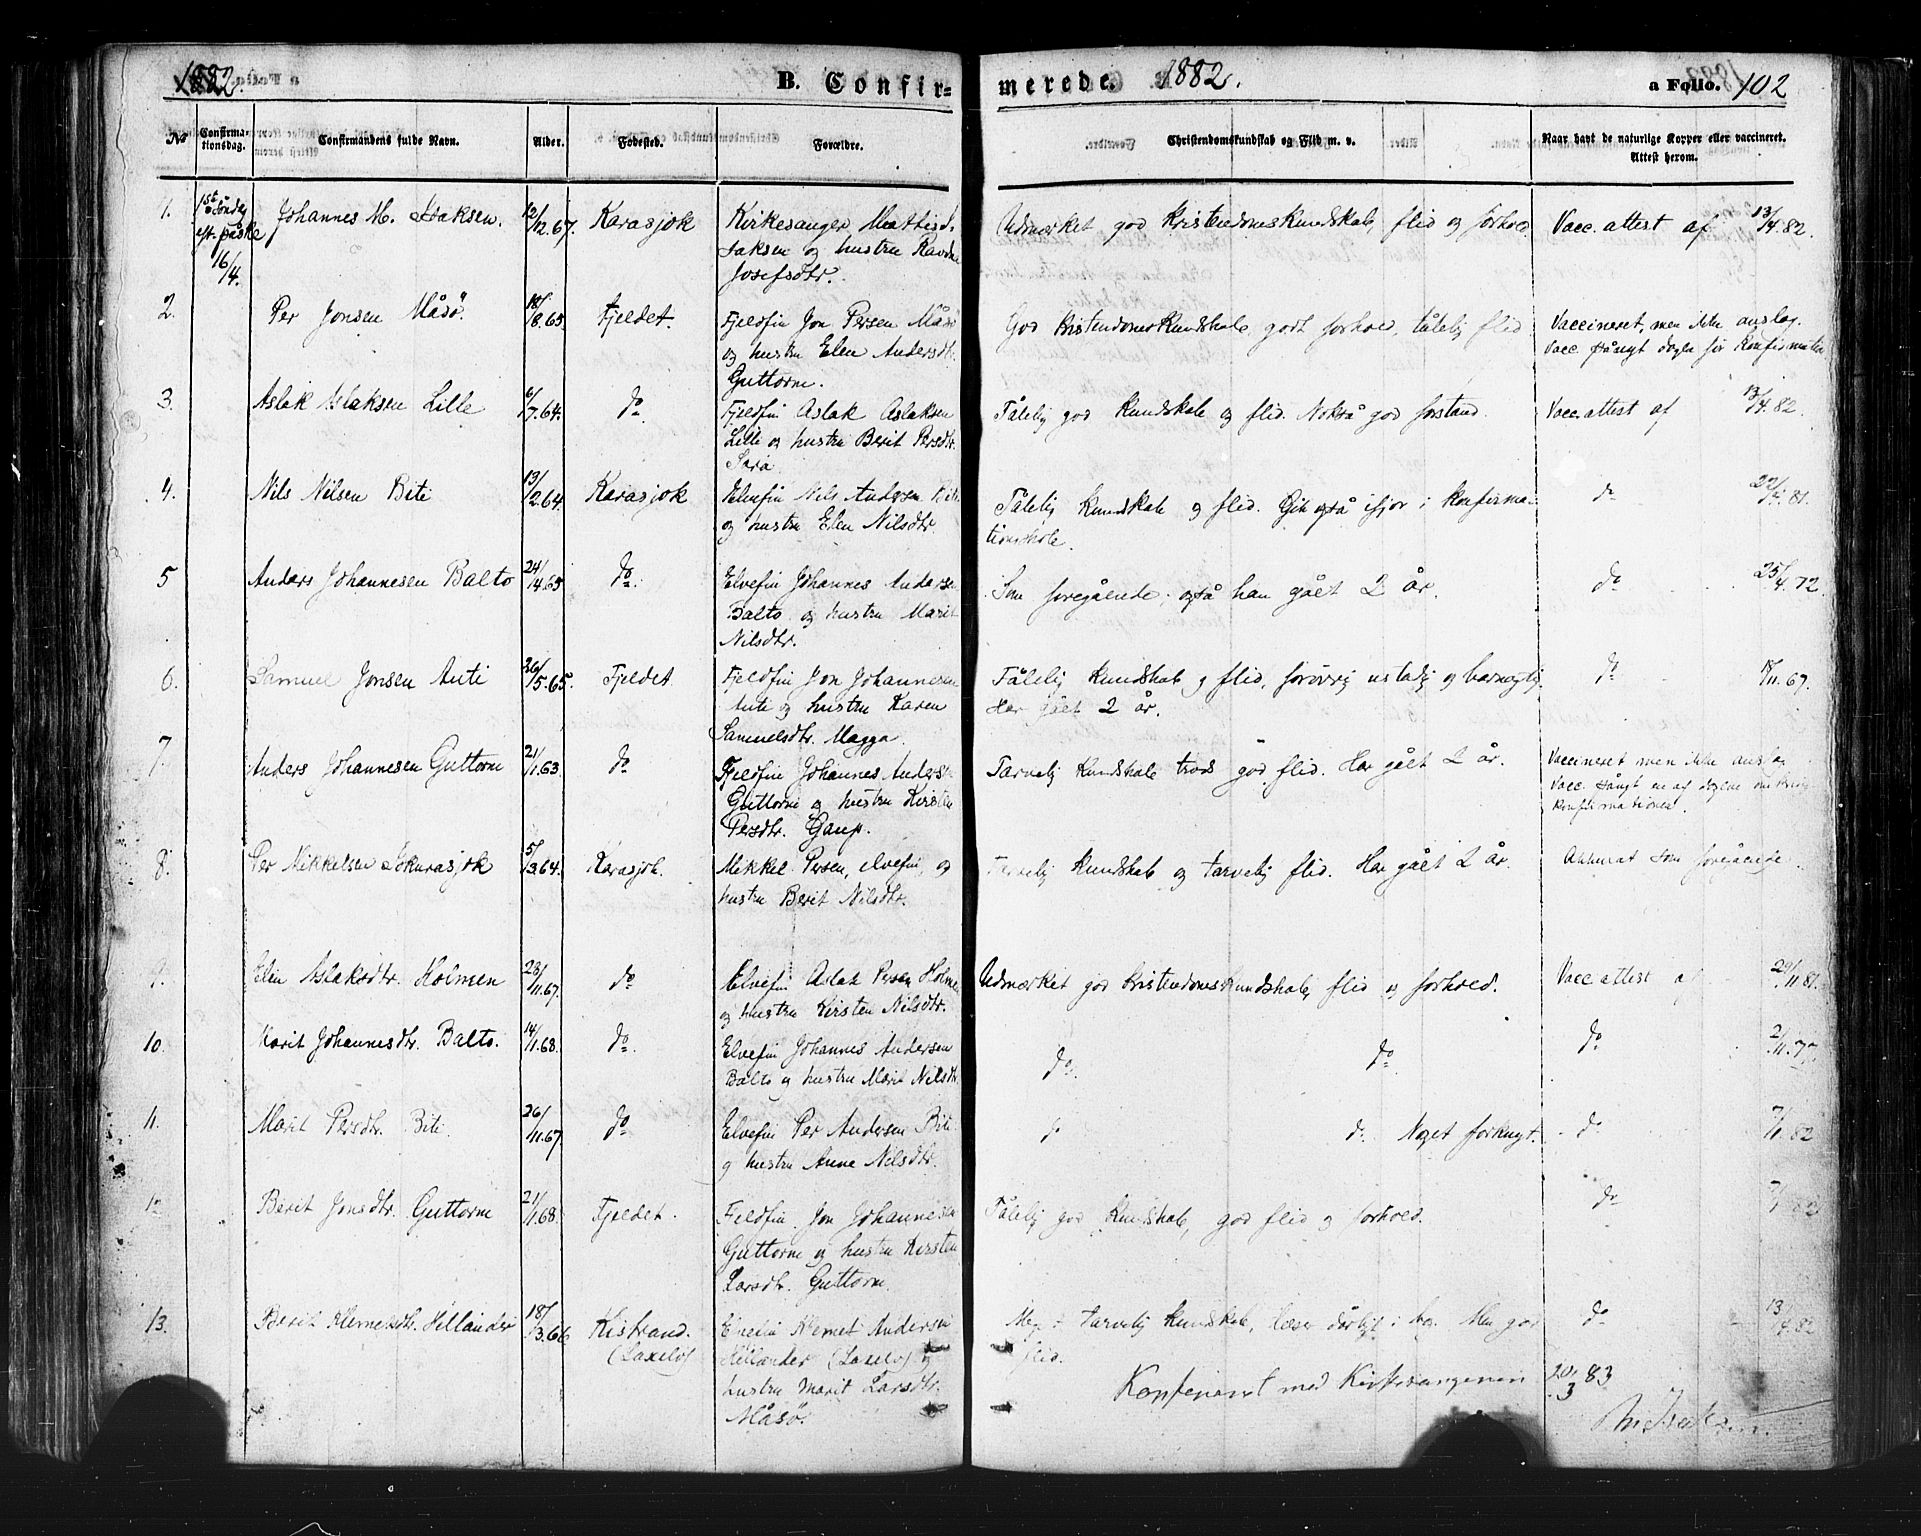 1882. B. Confir-
merede. 1882. a Folio. 102
No Confirma-tionsdag. Confirmandens fulde Navn. Alder. Fødested. Forældre.
Christendomskundskab og Flid m. v. Naar havt de naturlige Kopper eller vaccineret. Attest herom.
1. 1ste Søndag Johannes M. Isaksen. 12/12.67. Karasjok Kirkesanger Mathis J. Udmærket god kristendomskundskab, flid og forhold. Vacc. attest af 13/4.82.
eft. påske Isaksen og hustru Ravdna
16/4. Josefsdtr.
2. Per Jonsen Måsø. 18/8.65. Fjeldet. Fjeldfin Jon Persen Måsø God kristendomskundskab, godt forhold, tålelig flid Vaccineret, men ikke anslag.
og hustru Elen Andersdtr. Vacc. pånyt dagen før konfirmation
Guttorm.
3. Aslak Aslaksen Lille 6/7.64. do Fjeldfin Aslak Aslaksen Tålelig god kundskab og flid. Nokså god forstand. Vacc. attest af 13/4.82.
Lille og hustru Berit Persdtr.
Sara
4. Nils Nilsen Biti 13/2.64. Karasjok Elvefin Nils Andersen Biti Tålelig kundskab og flid. Gik også ifjor i konfirma- do 81.
og hustru Elen Nilsdtr. tionsskole.
5 Anders Johannesen Balto 24/4.65 do. Elvefin Johannes Andersen Som foregående; også han gået 2 år. do 25/4.72
Balto og hustru Marit
Nilsdtr.
6. Samuel Jonsen Anti 26/5.65. Fjeldet Fjeldfin Jon Johannesen Tålelig kundskab og flid, forøvrig ustadig og barnagtig. do 18/11.67.
Anti og hustru Karen Har gået 2 år.
Samuelsdtr. Magga.
7. Anders Johannesen Guttorm 21/1.63. do Fjeldfin Johannes Anders. Tarvelig kundskab trods god flid. Har gået 2 år. Vaccineret men ikke anslag
Guttorm og hustru Kirsten Vacc. pånyt en af dagene omkring
Persdtr. Gaup. konfirmationen.
8. Per Mikkelsen Jokurasjok 5/3.64. Karasjok. Mikkel Persen, elvefin, og Tarvelig kundskab og tarvelig flid. Har gået 2 år. Akkurat som foregående.
hustru Berit Nilsdtr.
9. Elen Aslaksdtr. Holmen 28/11.67. do Elvefin Aslak Persen Holmen Udmærket god kristendomskundskab, flid og forhold. Vacc attest af 29/11 81.
og hustru Kirsten Nilsdtr.
10. Marit Johannesdtr. Balto. 14/1.68. do. Elvefin Johannes Andersen do. do do 2/11.77.
Balto og hustru Marit Nilsdtr.
11. Marit Persdtr. Biti. 26/11.67. do Elvefin Per Andersen Biti do do. Noget forknyt. do 7/1.82
og hustru Anne Nilsdtr.
12 Berit Jonsdtr. Guttorm 21/1.68. Fjeldet. Fjeldfin Jon Johannesen Tålelig god kundskab, god flid og forhold. do 7/1 82
Guttorm og hustru Kirsten
Larsdtr. Guttorm.
13. Berit Klemetsdtr. Hellander 18/3.66 Kistrand. Elvefin Klemet Andersen Meget tarvelig kundskab, læser dårligt i bog. Men god do 13/4.82
(Laxelv) Hellander (Laxelv) og flid.
hustru Marit Larsdtr. Konfereret med Kirkesangeren 20/3 83
Måsø. M Isaksen.